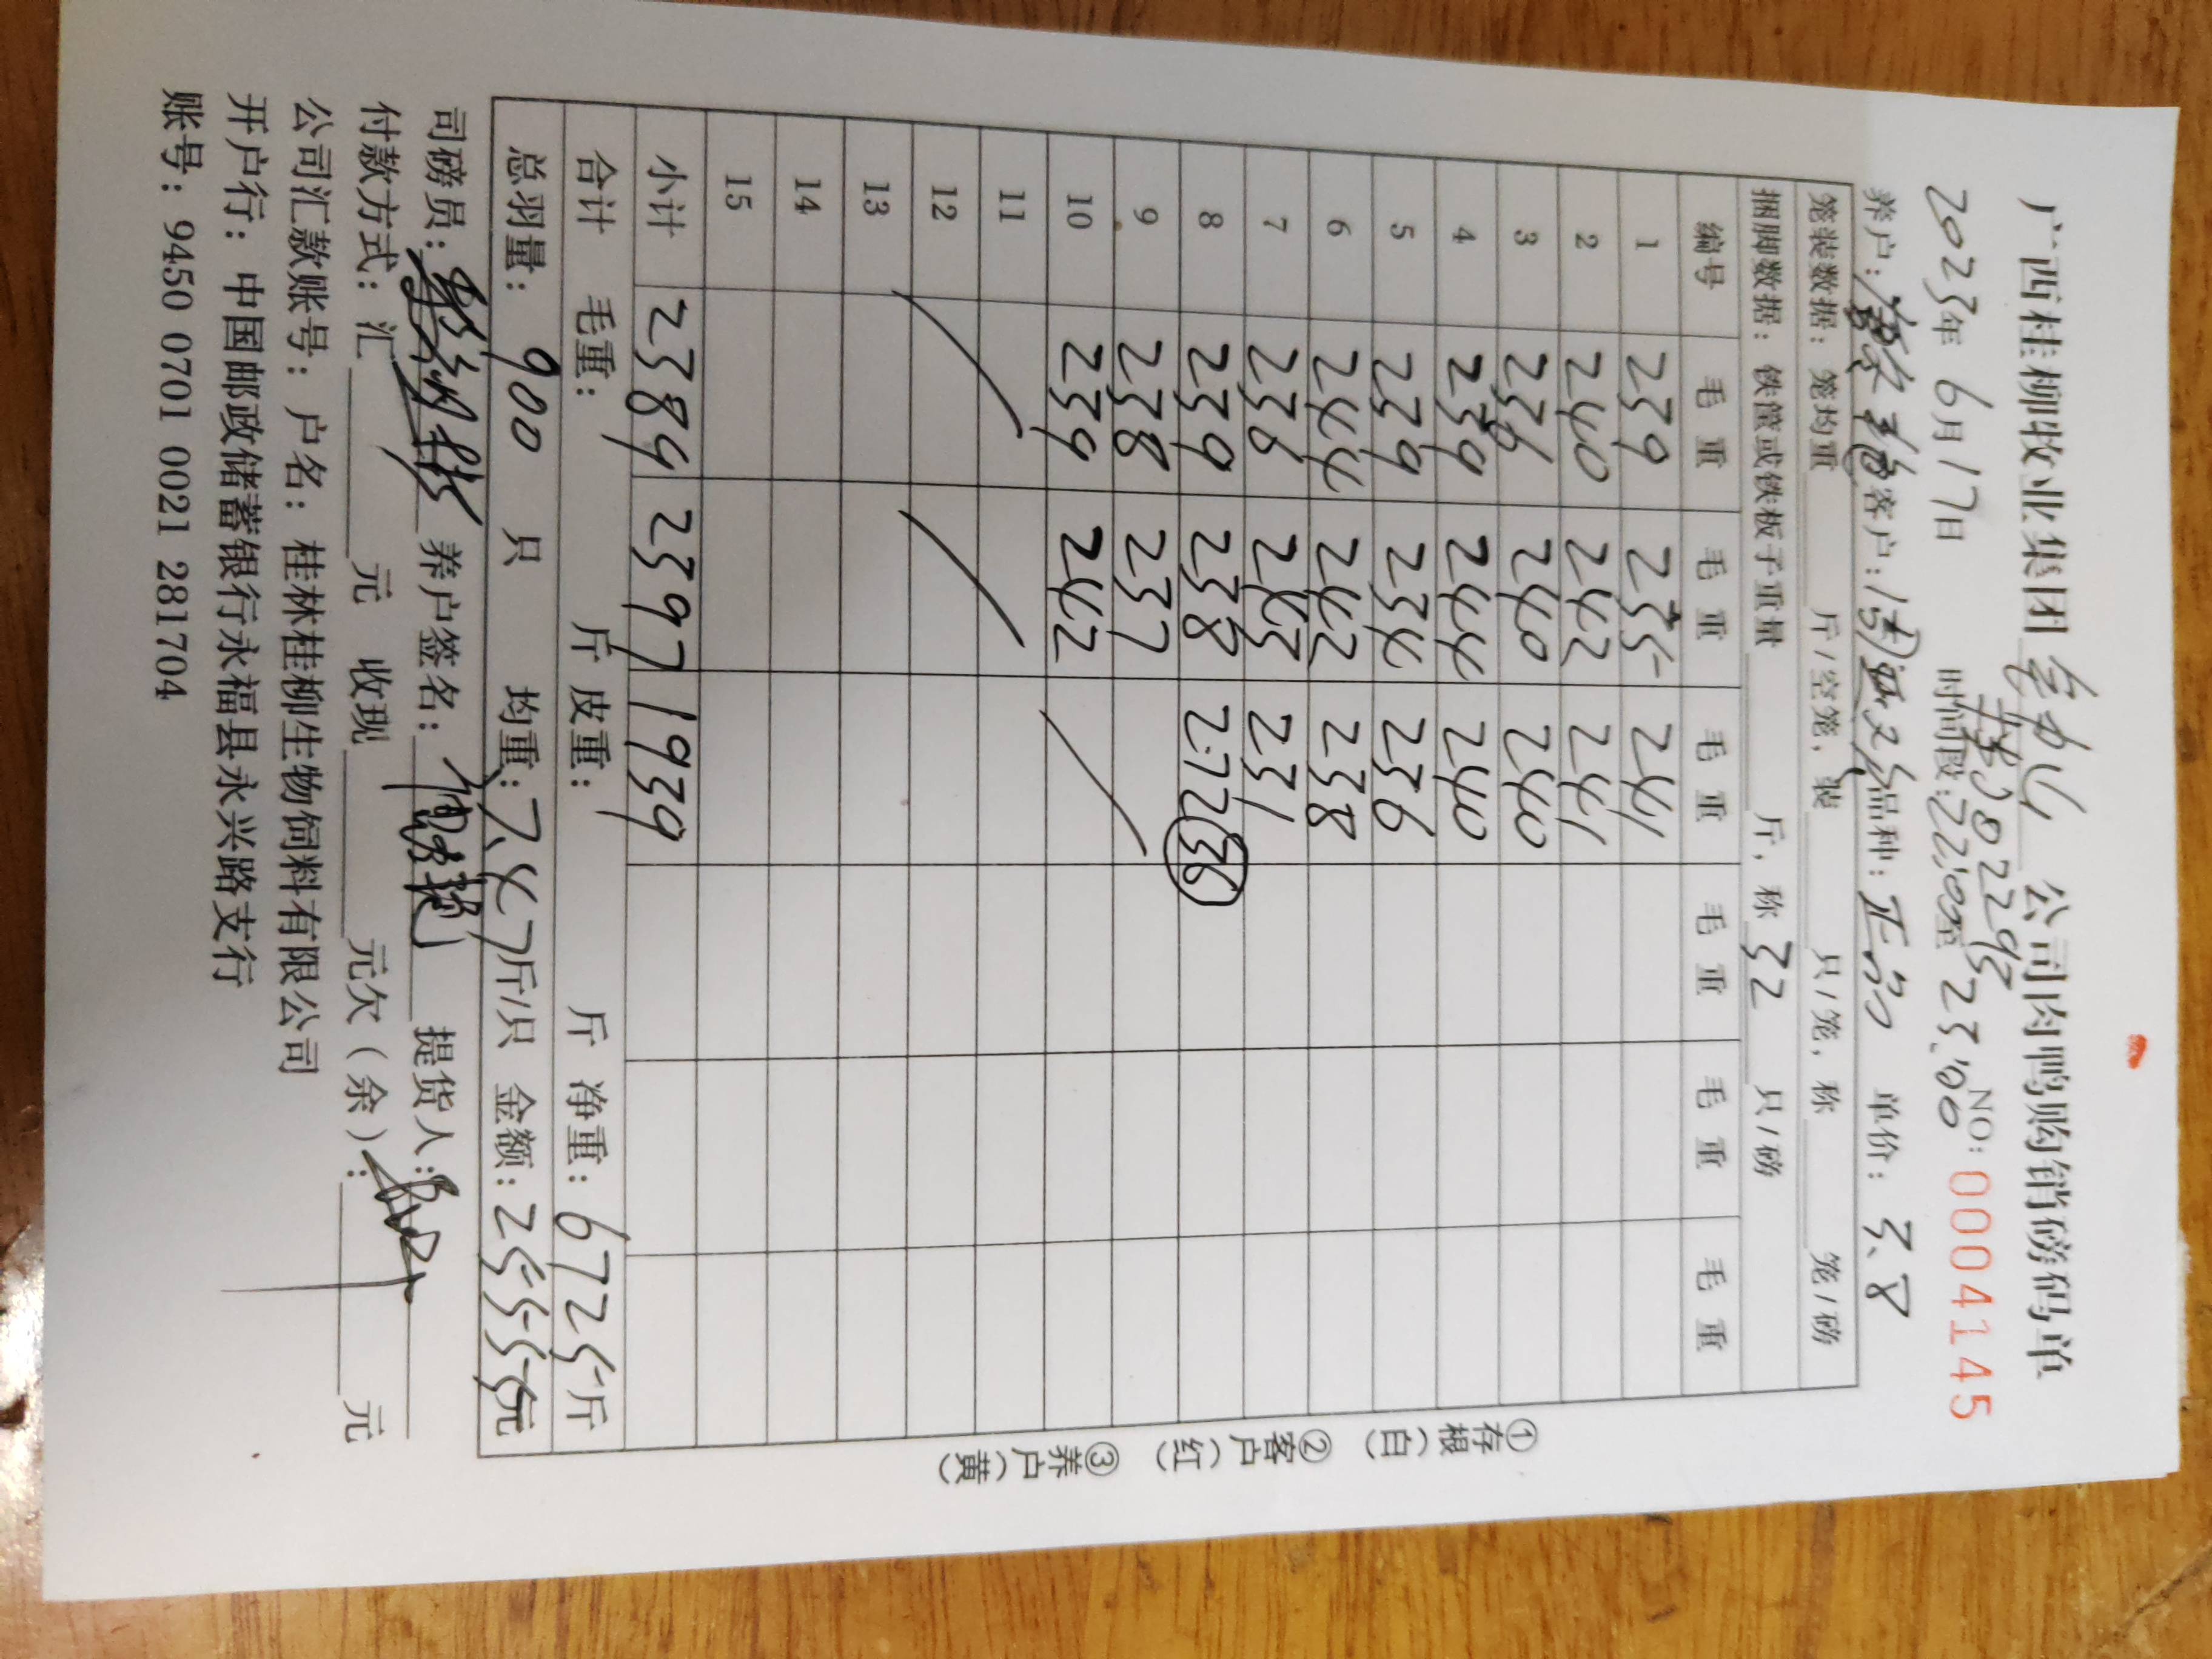 广西桂柳牧业集团 公司肉鸭购销磅码单
2023年 6月17日 时间段:22:00至 23:00 NO: 0004145
养户: 客户: 品种: 单价: 3.8
笼装数据: 笼均重 斤/空笼, 装 只/笼, 称 笼/磅
捆脚数据: 铁管或铁板子重量 斤, 称 32 只/磅
编号 毛重 毛重 毛重 毛重 毛重 毛重
1 239 235 241
2 240 242 241
3 236 240 240
4 239 244 240
5 239 234 236
6 244 242 238
7 236 231
8 239 238 272 (36)
9 238 237
10 239 242
11
12
13
14
15
小计 2389 2397 1939
合计 毛重: 斤 皮重: 斤 净重: 6725斤
总羽量: 900 只 均重: 7.47斤/只 金额: 25555元
司磅员: 养户签名: 提货人:
付款方式: 汇 元 收现 元欠(余): 元
公司汇款账号: 户名: 桂林桂柳生物饲料有限公司
开户行: 中国邮政储蓄银行永福县永兴路支行
账号: 9450 0701 0021 281704
①存根(白) ②客户(红) ③养户(黄)